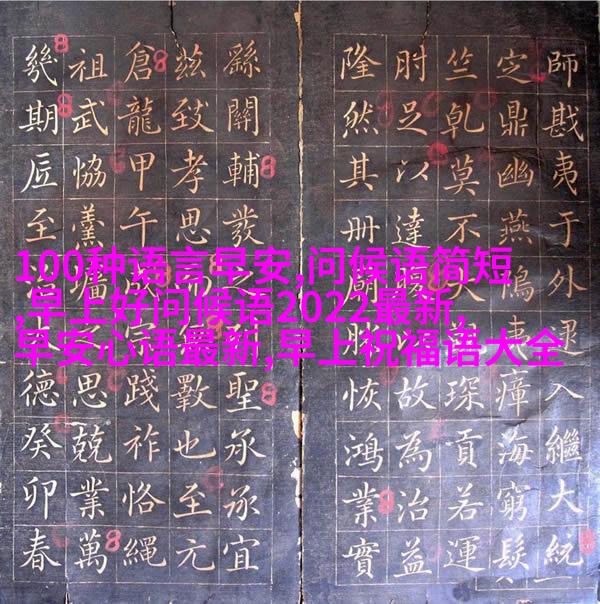 100种语言早安,问候语简短
,早上好问候语2022最新,
早安心语最新,早上祝福语大全
師戡夷于外逮入繼大統
定鼎幽燕鳩夷瘴海窮髮
竺乹莫不琛貢若運
肘足以達故為治益
隆然其冊恢鴻業實
繇關輔發之聖承承宜
茲致孝思斁也至元
倉龍甲午成宗踐祚恪繩
祖武協羹墻之思兢業萬
幾期匠至治德癸卯春